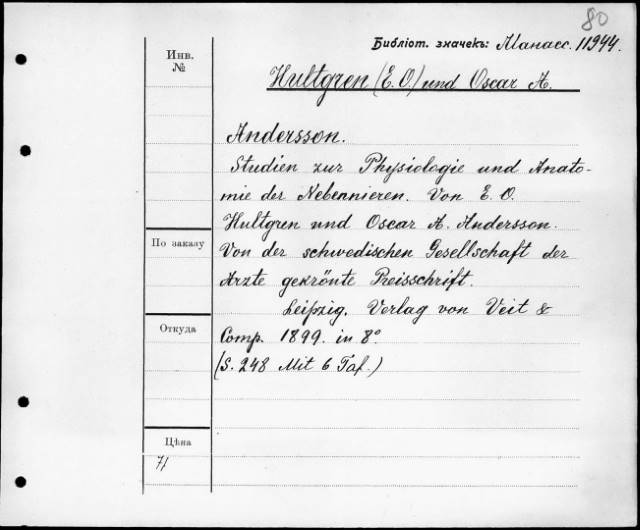 80
Библіот. значекъ: Манасс. 11944.
Инв.
№
Hultgren (E. O.) und Oscar A.
Andersson.
Studien zur Physiologie und Anato-
mie der Nebennieren. Von E. O.
Hultgren und Oscar A. Andersson.
По заказу
Von der schwedischen Gesellschaft der
Arzte gekrönte Preisschrift.
Leipzig. Verlag von Veit &
Откуда
Comp. 1899. in 8°
(S. 248 Mit 6 Taf.)
Цѣна
71